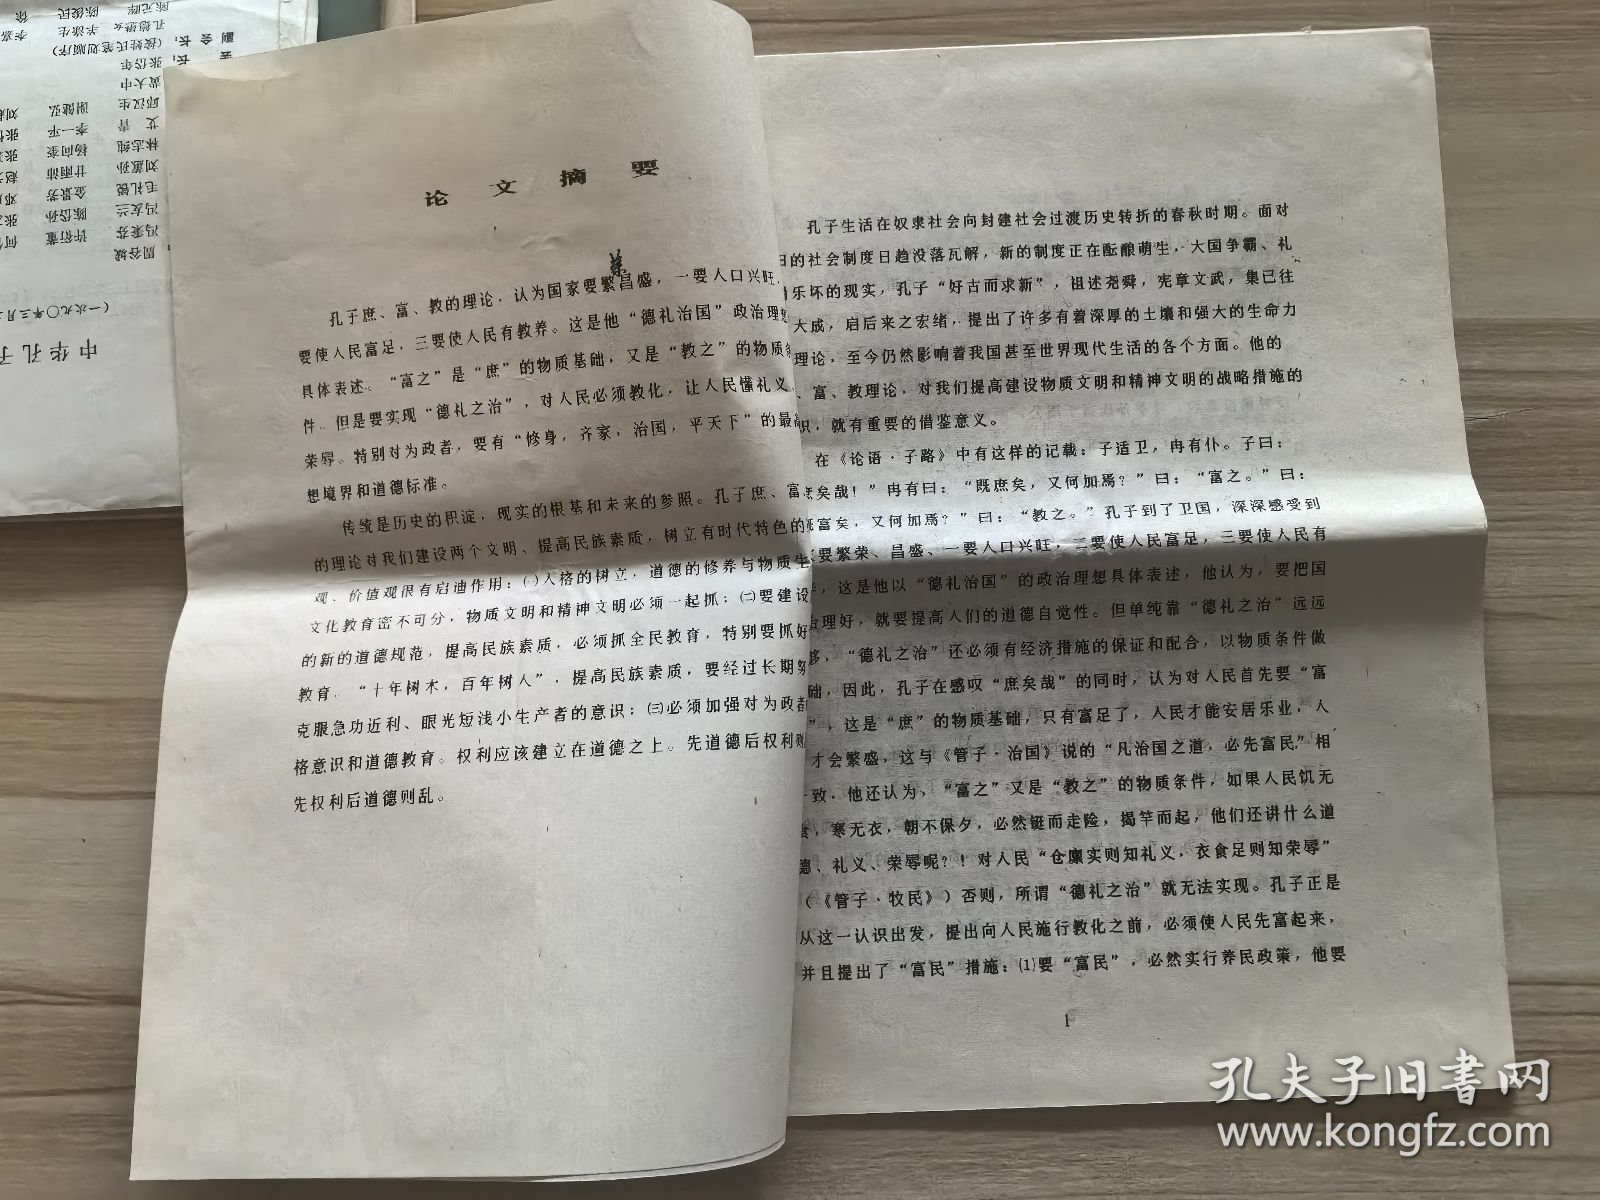 论文摘要
荣
孔子庶、富、教的理论，认为国家要繁昌盛，一要人口兴旺，
要使人民富足，三要使人民有教养。这是他“德礼治国”政治理想
具体表述。“富之”是“庶”的物质基础，又是“教之”的物质条
件。但是要实现“德礼之治”，对人民必须教化，让人民懂礼义、
荣辱。特别对为政者，要有“修身，齐家，治国，平天下”的最高
想境界和道德标准。
传统是历史的积淀，现实的根基和未来的参照。孔子庶、富
的理论对我们建设两个文明、提高民族素质，树立有时代特色的
观、价值观很有启迪作用：㈠人格的树立，道德的修养与物质生
文化教育密不可分，物质文明和精神文明必须一起抓：㈡要建设
的新的道德规范，提高民族素质，必须抓全民教育，特别要抓好
教育。“十年树木，百年树人”，提高民族素质，要经过长期努
克服急功近利、眼光短浅小生产者的意识：㈢必须加强对为政者
格意识和道德教育。权利应该建立在道德之上。先道德后权利则
先权利后道德则乱。
孔子生活在奴隶社会向封建社会过渡历史转折的春秋时期。面对
旧的社会制度日趋没落瓦解，新的制度正在酝酿萌生，大国争霸、礼
乐坏的现实，孔子“好古而求新”，祖述尧舜，宪章文武，集已往
大成，启后来之宏绪，提出了许多有着深厚的土壤和强大的生命力
理论，至今仍然影响着我国甚至世界现代生活的各个方面。他的
、富、教理论，对我们提高建设物质文明和精神文明的战略措施的
识，就有重要的借鉴意义。
在《论语·子路》中有这样的记载：子适卫，冉有仆。子曰：
庶矣哉！”冉有曰：“既庶矣，又何加焉？”曰：“富之。”曰：
既富矣，又何加焉？”曰：“教之。”孔子到了卫国，深深感受到
家要繁荣、昌盛、一要人口兴旺，二要使人民富足，三要使人民有
养，这是他以“德礼治国”的政治理想具体表述，他认为，要把国
治理好，就要提高人们的道德自觉性。但单纯靠“德礼之治”远远
够，“德礼之治”还必须有经济措施的保证和配合，以物质条件做
础，因此，孔子在感叹“庶矣哉”的同时，认为对人民首先要“富
”，这是“庶”的物质基础，只有富足了，人民才能安居乐业，人
才会繁盛，这与《管子·治国》说的“凡治国之道，必先富民”相
一致．他还认为，“富之”又是“教之”的物质条件，如果人民饥无
食，寒无衣，朝不保夕，必然铤而走险，揭竿而起，他们还讲什么道
德、礼义、荣辱呢？！对人民“仓廪实则知礼义，衣食足则知荣辱”
（《管子·牧民》）否则，所谓“德礼之治”就无法实现。孔子正是
从这一认识出发，提出向人民施行教化之前，必须使人民先富起来，
并且提出了“富民”措施：⑴要“富民”，必然实行养民政策，他要
1
陈元晖 陈俊民 徐
孔德懋女 辛冠洁 李
副会长：（按姓氏笔划顺序）
会长：张岱年
黄大中
邱汉生 谢健弘 刘
艾青 李一平 张
林志纯 杨向奎 张
刘蕙孙 甘雨沛 赵
毛礼锐 金景芳 邓
冯友兰 陈岱孙 张
冯素芬 许衍董 何
周谷城
（一九九〇年三月
中华孔子
孔夫子旧书网
www.kongfz.com